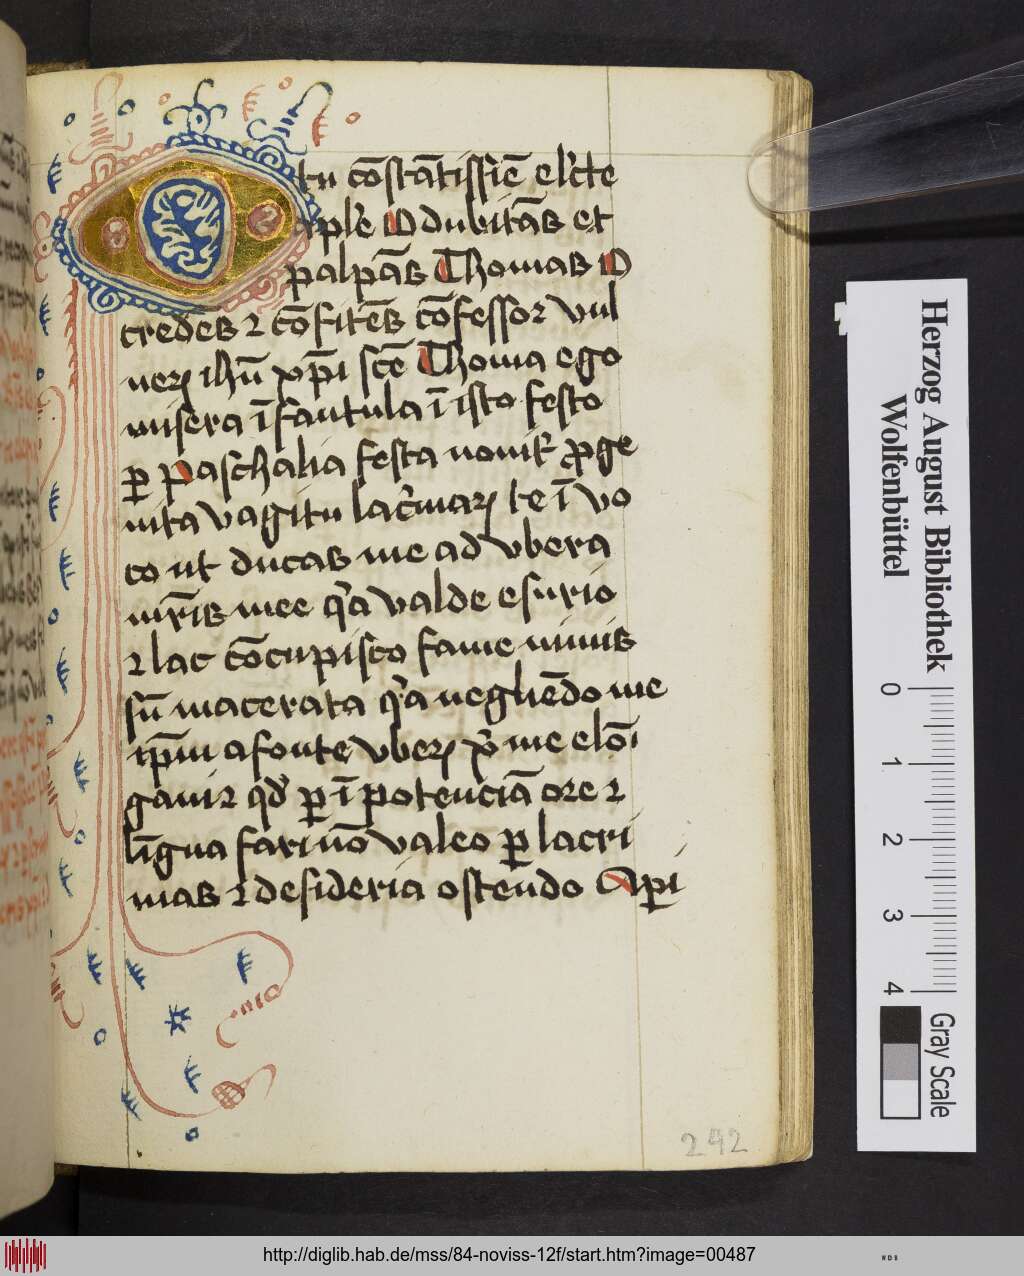 tu cōstātissīe elc̄te
aplē O dubitās et
palpās Thomas O
credēs ⁊ cōfitēs cōfessor vul
nerꝝ ihū xp̄i scē Thoma ego
misera īfantula ī isto festo
ꝑ paschalia festa novit̾ ꝓge
nita vagitu lac̄marꝝ te īvo
co ut ducas me ad vbera
mr̄is mee qͥa valde esurio
⁊ lac cōcupisco fame nimis
sū macerata qͥa negliēdo me
ip̄m a fonte vberꝝ xͥ me elōi
gavi ⁊ qd̾ ꝑ īpotenciā ore ⁊
līgua fari nō valeo ꝑ lacri
mas ⁊ desideria ostendo Api
242
Herzog August Bibliothek
Wolfenbüttel
0 1 2 3 4
Gray Scale
http://diglib.hab.de/mss/84-noviss-12f/start.htm?image=00487